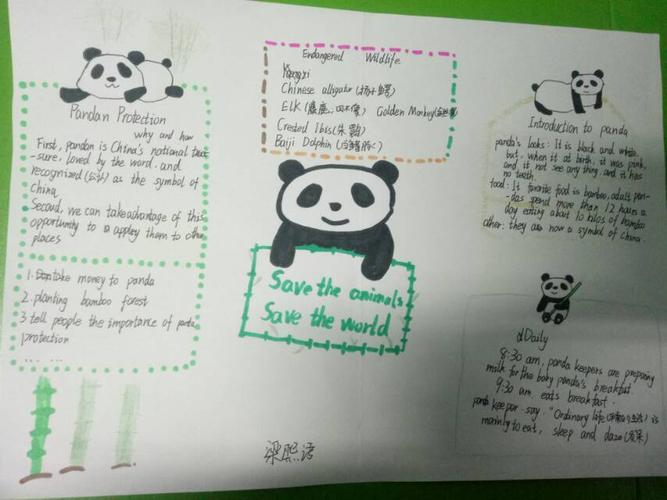 Pandan Protection
why and how
First, pandan is China's national trea
-sure, loved by the word. and
recognized (公认) as the symbol of
China.
Second, we can take advantage of this
opportunity to a appley them to other
places
1. take money to panda
2. planting bamboo forest
3. tell people the importance of panda
protection
... ...
Endangered Wildlife
Chinese alligator (扬子鳄)
ELK (麋鹿, 四不像) Golden Monkey
Crested Ibis (朱鹮)
Baiji Dolphin
Save the animals
Save the world
Introduction to panda
panda's looks: It is black and white.
but. when it at birth, it was pink.
and it not see any thing. and it has
no teeth.
food: It favorite food is bamboo, adult pan-
-das spend more than 12 hours a
day eating about 10 kilos of bamboo
other: they are now a symbol of China.
Daily
8:30 am. panda keepers are preparing
milk for the baby panda's breakfast.
9:30 am. eats breakfast.
panda keeper say. "Ordinary life is
mainly to eat, sleep and daze (发呆)
梁熙语